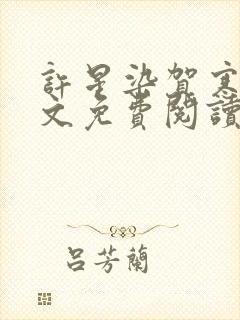 許星染賀寒
文免費閱讀
呂芳蘭